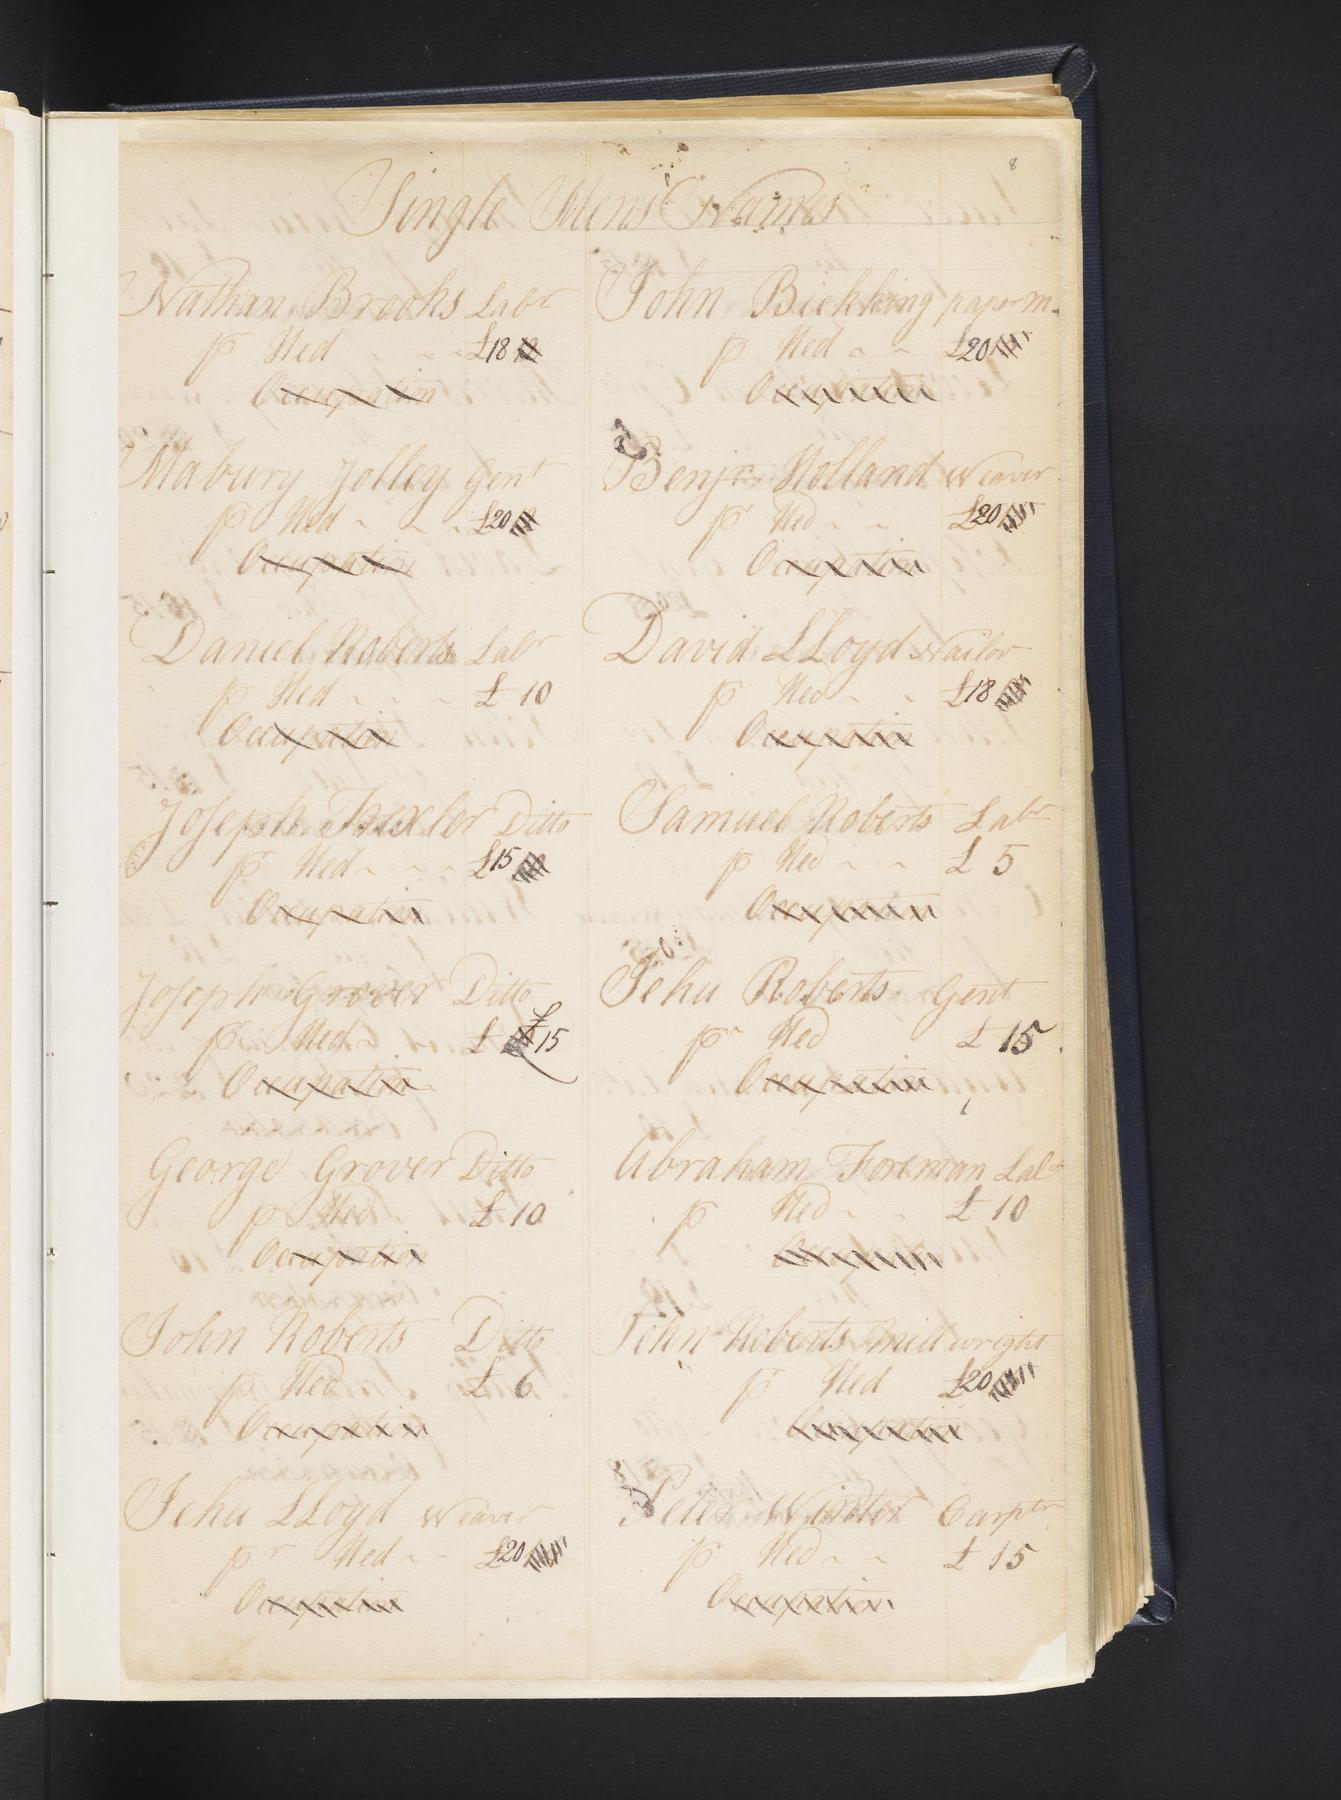 8
Single Mens Names
Nathan Brooks Labr
pr Hed £18
Occupation
Mabury Jolley Gent
pr Hed £20
Occupation
Daniel Roberts Labr
pr Hed £ 10
Occupation
Joseph Trexler Ditto
pr Hed £15
Occupation
Joseph Grover Ditto
pr Hed £ £15
Occupation
George Grover Ditto
pr Hed £ 10
Occupation
John Roberts Ditto
pr Hed £ 6
Occupation
Jehu LLoyd Weaver
pr Hed £20
Occupation
John Bickking paperm.
pr Hed £20
Occupation
Benjn Holland Weaver
pr Hed £20
Occupation
David LLoyd Nailor
pr Hed £18
Occupation
Samuel Roberts Labr
pr Hed £ 5
Occupation
Jehu Roberts Gent
pr Hed £ 15
Occupation
Abraham Foreman Labr
pr Hed £ 10
Occupation
John Roberts mill wright
pr Hed £20
Occupation
Peter Winter Carptr
pr Hed £ 15
Occupation